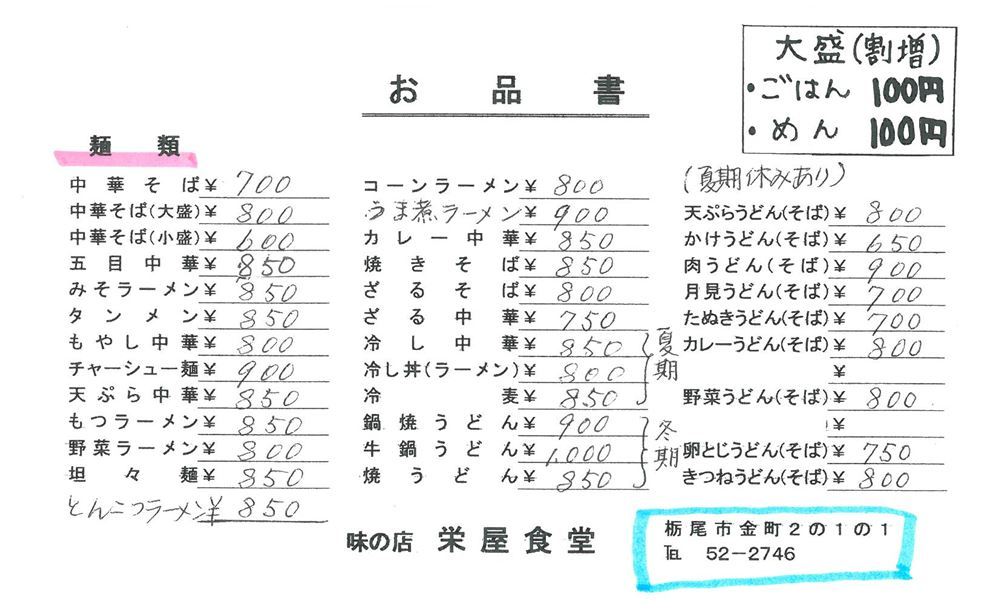 お品書
大盛(割増)
・ごはん 100円
・めん 100円
麺類
中華そば ¥ 700
中華そば(大盛) ¥ 800
中華そば(小盛) ¥ 600
五目中華 ¥ 850
みそラーメン ¥ 850
タンメン ¥ 850
もやし中華 ¥ 800
チャーシュー麺 ¥ 900
天ぷら中華 ¥ 850
もつラーメン ¥ 850
野菜ラーメン ¥ 800
坦々麺 ¥ 850
とんこつラーメン ¥ 850
コーンラーメン ¥ 800
うま煮ラーメン ¥ 900
カレー中華 ¥ 850
焼きそば ¥ 850
ざるそば ¥ 800
ざる中華 ¥ 750
冷し中華 ¥ 850
冷し丼(ラーメン) ¥ 800
冷麦 ¥ 850
夏期
鍋焼うどん ¥ 900
牛鍋うどん ¥ 1,000
焼うどん ¥ 850
冬期
(夏期休みあり)
天ぷらうどん(そば) ¥ 800
かけうどん(そば) ¥ 650
肉うどん(そば) ¥ 900
月見うどん(そば) ¥ 700
たぬきうどん(そば) ¥ 700
カレーうどん(そば) ¥ 800
¥
野菜うどん(そば) ¥ 800
¥
卵とじうどん(そば) ¥ 750
きつねうどん(そば) ¥ 800
味の店 栄屋食堂
栃尾市金町2の1の1
℡ 52-2746